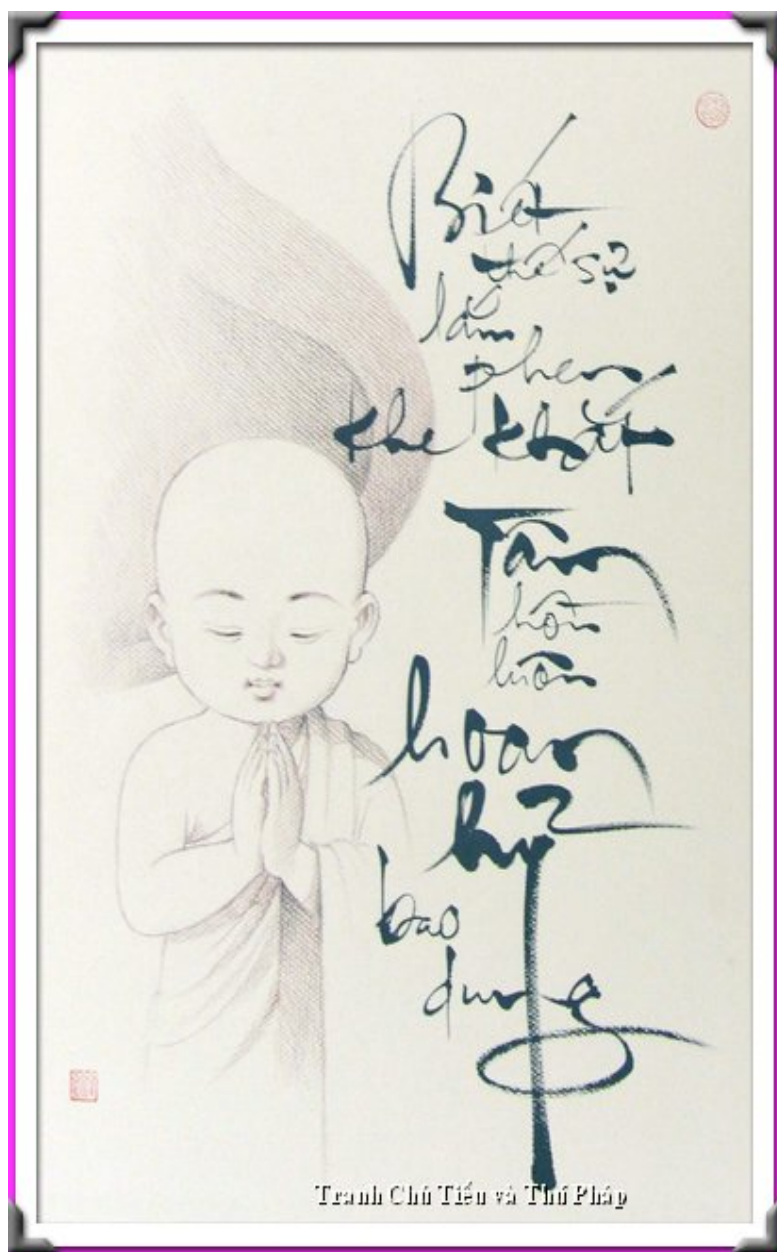 Biết
thế sự
lắm
phen
khe khắt
Tâm
hồn
luôn
hoan
hỷ
bao
dung
Tranh Chú Tiểu và Thú Pháp